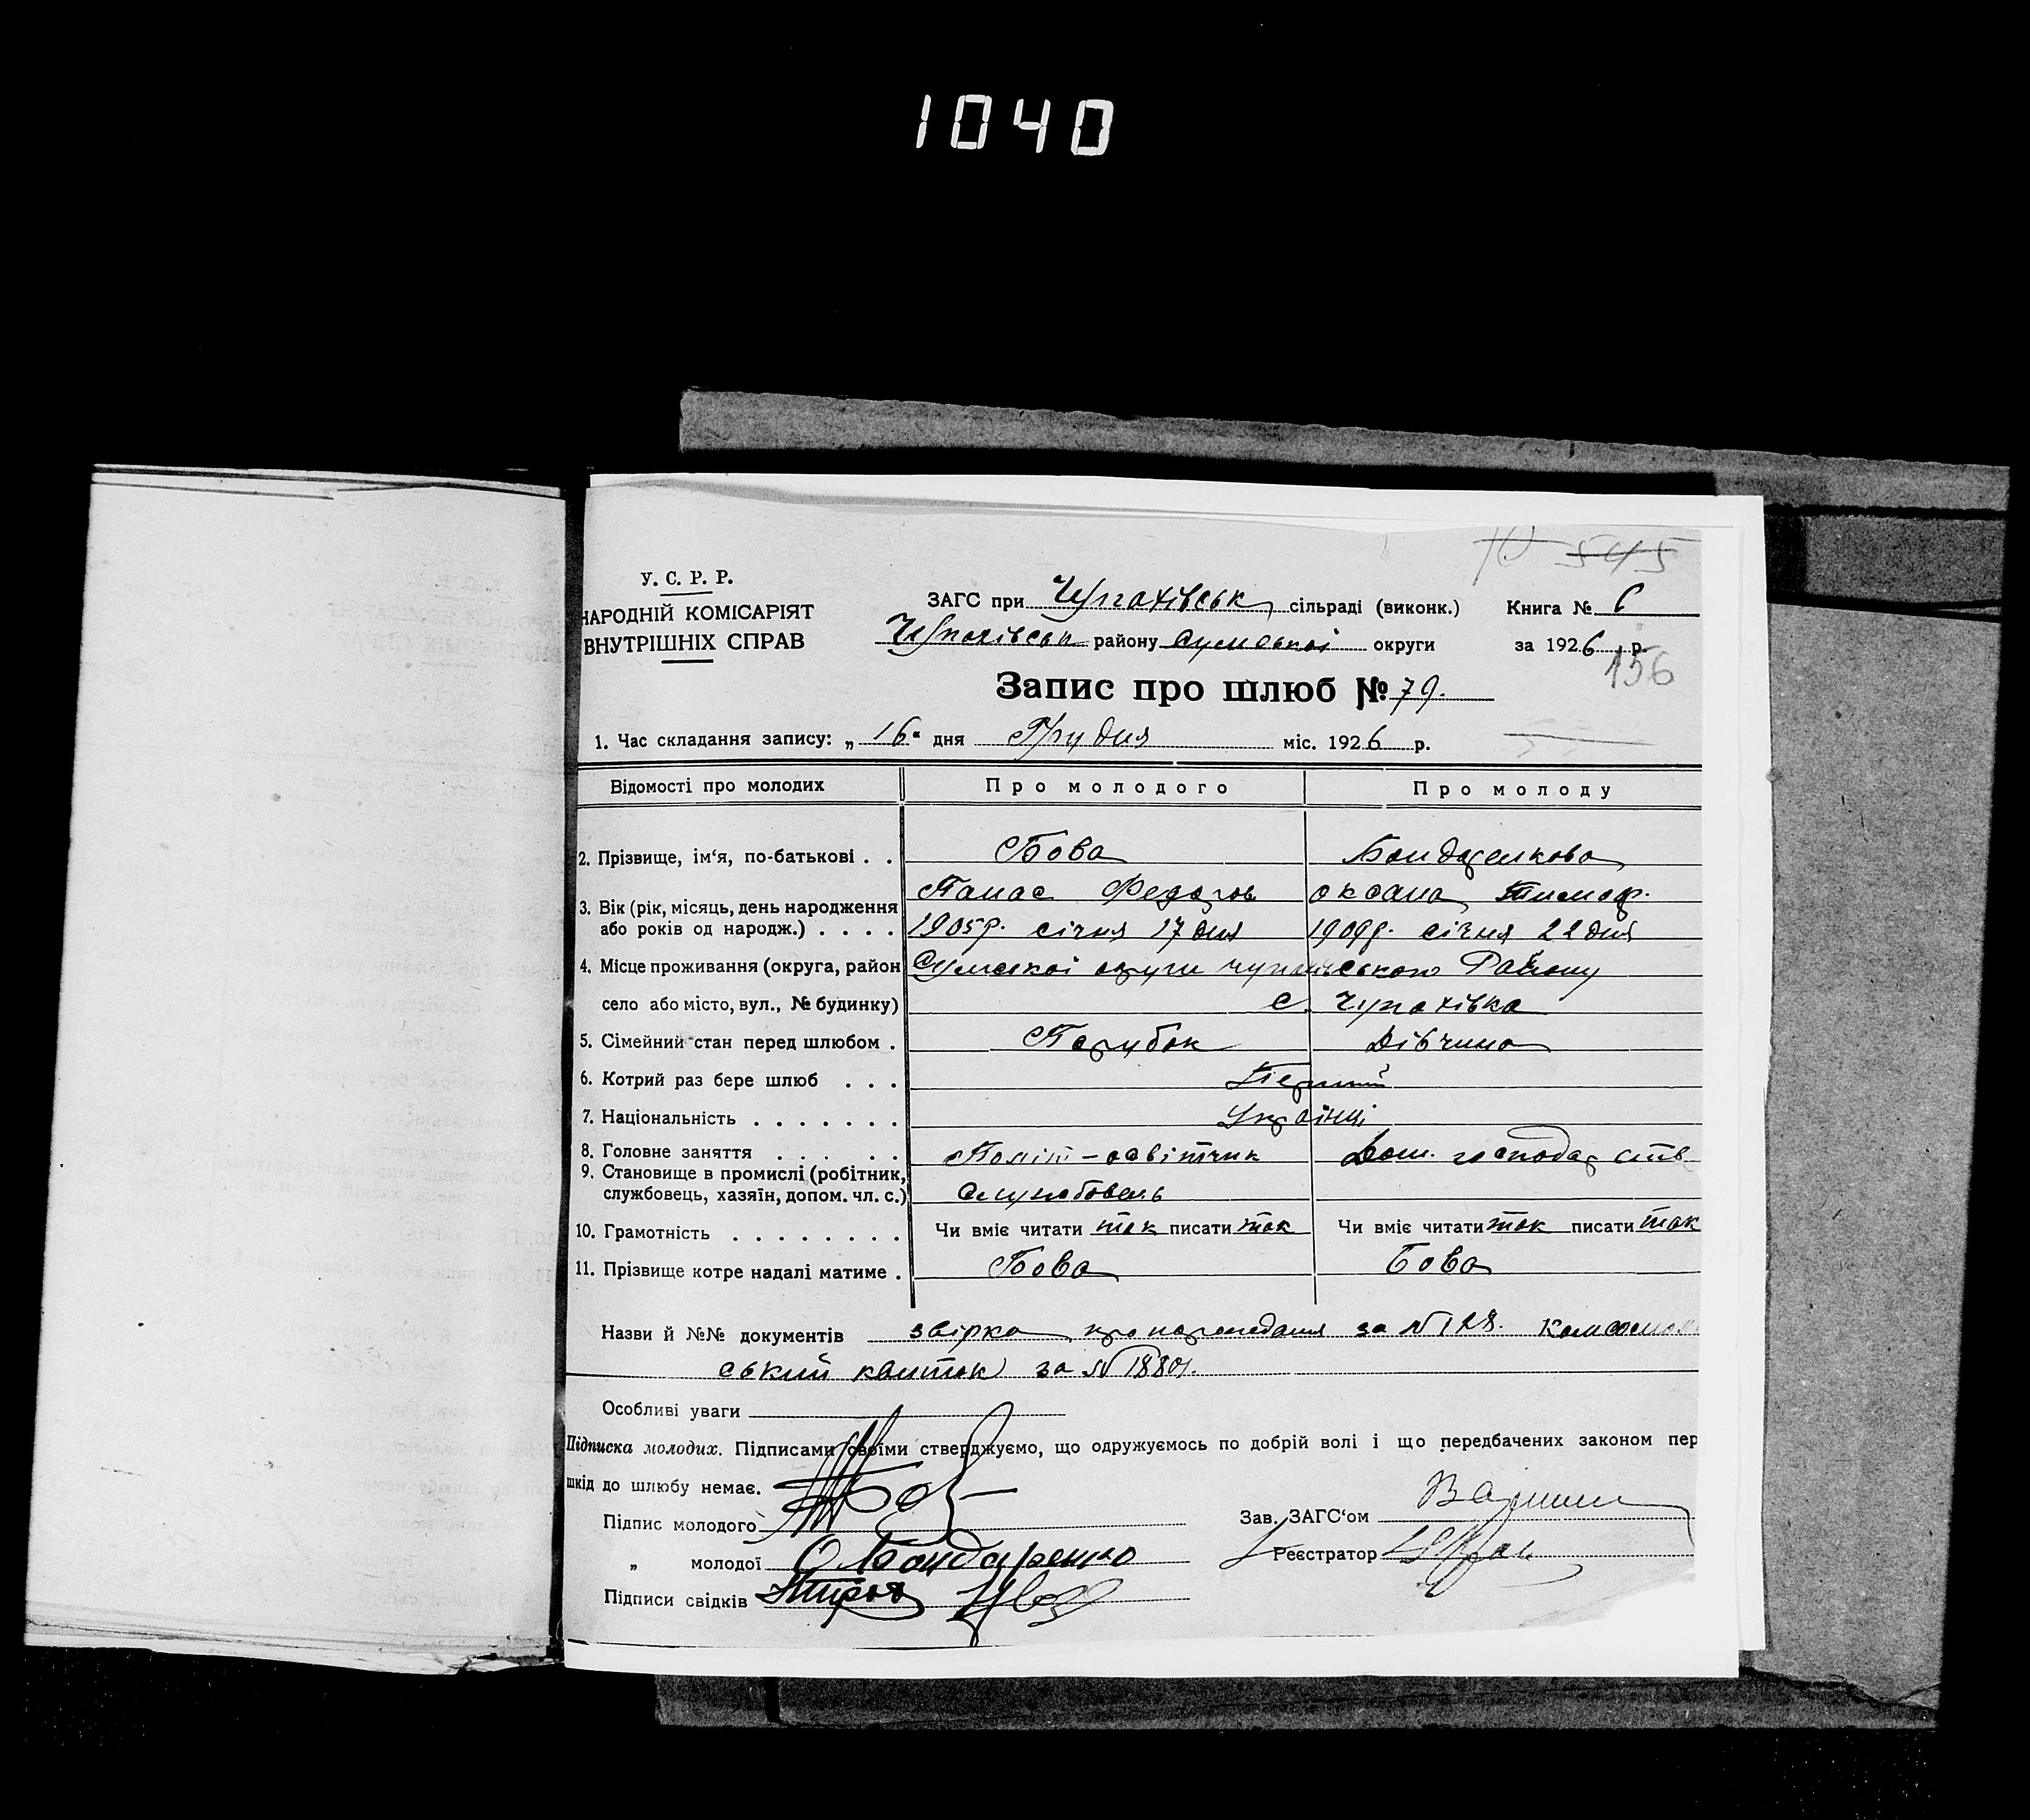 1040
10 545
У. С. Р. Р.
НАРОДНІЙ КОМІСАРІЯТ
ВНУТРІШНІХ СПРАВ
ЗАГС при Чупахівськ сільраді (виконк.) Книга № 6
Чупахівськ району Сумської округи за 1926 р.
156
Запис про шлюб № 79.
1. Час складання запису: „16“ дня Грудня міс. 1926 р.
Відомості про молодих Про молодого Про молоду
2. Прізвище, ім‘я, по-батькові . . Бова Бондаренкова
Панас Федоров оксана Тимоф.
3. Вік (рік, місяць, день народження
або років од народж.) . . . . 1905р. січня 17 дня 1909р. січня 22 дня
4. Місце проживання (округа, район Сумської округи чупахівського Району
село або місто, вул., № будинку) с. Чупахівка
5. Сімейний стан перед шлюбом . Парубок Дівчина
6. Котрий раз бере шлюб . . . Перший
7. Національність . . . . . . . Українці
8. Головне заняття . . . . . Політ-освітчик Дом. господарств
9. Становище в промислі (робітник,
службовець, хазяїн, допом. чл. с.) Службовець
10. Грамотність . . . . . . . . Чи вміє читати так писати так Чи вміє читати так писати так
11. Прізвище котре надалі матиме . Бова Бова
Назви й №№ документів звірка про народження за № 128. комсомоль
ський квиток за № 18801.
Особливі уваги
Підписка молодих. Підписами своїми стверджуємо, що одружуємось по добрій волі і що передбачених законом пер
шкід до шлюбу немає.
Підпис молодого
Зав. ЗАГС‘ом
„ молодої О Бондаренко
Реєстратор
Підписи свідків